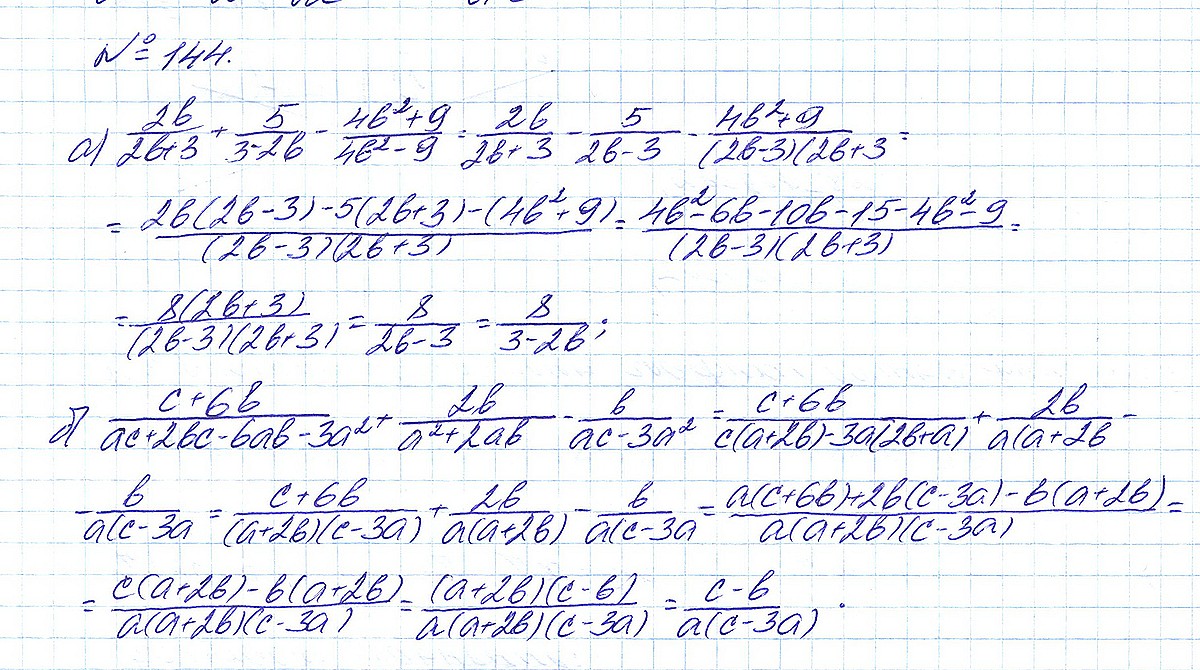 № 144.
а) 2b/(2b+3) + 5/(3-2b) - (4b²+9)/(4b²-9) = 2b/(2b+3) - 5/(2b-3) - (4b²+9)/((2b-3)(2b+3 =
= (2b(2b-3)-5(2b+3)-(4b²+9))/((2b-3)(2b+3)) = (4b²-6b-10b-15-4b²-9)/((2b-3)(2b+3)) =
= 8(2b+3)/((2b-3)(2b+3)) = 8/(2b-3) = 8/(3-2b);
б) (c+6b)/(ac+2bc-6ab-3a²) + 2b/(a²+2ab) - b/(ac-3a²) = (c+6b)/(c(a+2b)-3a(2b+a)) + 2b/(a(a+2b -
- b/(a(c-3a = (c+6b)/((a+2b)(c-3a)) + 2b/(a(a+2b)) - b/(a(c-3a = (a(c+6b)+2b(c-3a)-b(a+2b))/(a(a+2b)(c-3a)) =
= (c(a+2b)-b(a+2b))/(a(a+2b)(c-3a)) = (a+2b)(c-b)/(a(a+2b)(c-3a)) = (c-b)/(a(c-3a)) .